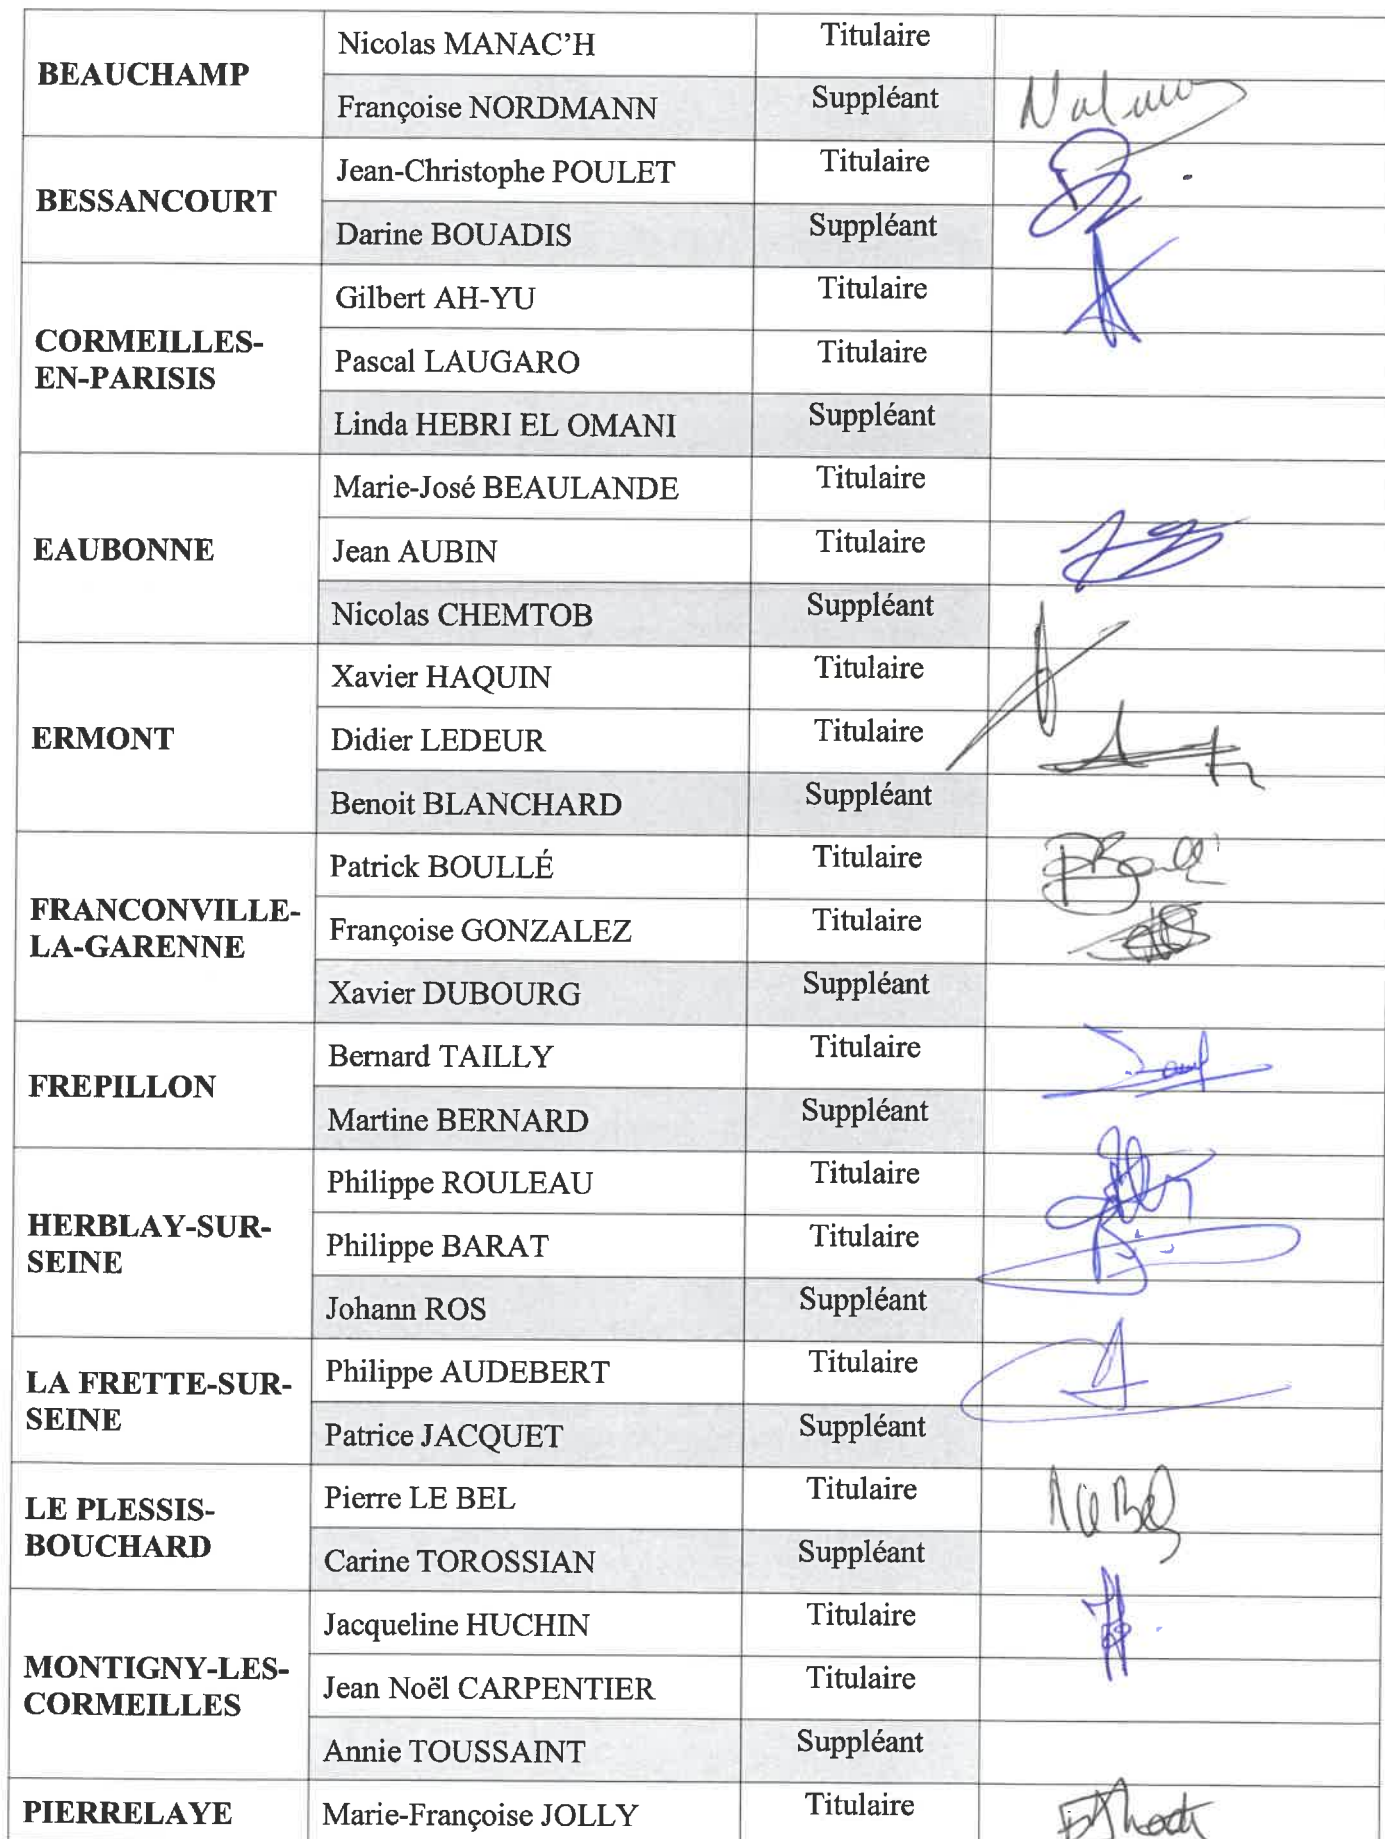 BEAUCHAMP
Nicolas MANAC'H Titulaire
Françoise NORDMANN Suppléant
BESSANCOURT
Jean-Christophe POULET Titulaire
Darine BOUADIS Suppléant
CORMEILLES-
EN-PARISIS
Gilbert AH-YU Titulaire
Pascal LAUGARO Titulaire
Linda HEBRI EL OMANI Suppléant
EAUBONNE
Marie-José BEAULANDE Titulaire
Jean AUBIN Titulaire
Nicolas CHEMTOB Suppléant
ERMONT
Xavier HAQUIN Titulaire
Didier LEDEUR Titulaire
Benoit BLANCHARD Suppléant
FRANCONVILLE-
LA-GARENNE
Patrick BOULLÉ Titulaire
Françoise GONZALEZ Titulaire
Xavier DUBOURG Suppléant
FREPILLON
Bernard TAILLY Titulaire
Martine BERNARD Suppléant
HERBLAY-SUR-
SEINE
Philippe ROULEAU Titulaire
Philippe BARAT Titulaire
Johann ROS Suppléant
LA FRETTE-SUR-
SEINE
Philippe AUDEBERT Titulaire
Patrice JACQUET Suppléant
LE PLESSIS-
BOUCHARD
Pierre LE BEL Titulaire
Carine TOROSSIAN Suppléant
MONTIGNY-LES-
CORMEILLES
Jacqueline HUCHIN Titulaire
Jean Noël CARPENTIER Titulaire
Annie TOUSSAINT Suppléant
PIERRELAYE
Marie-Françoise JOLLY Titulaire